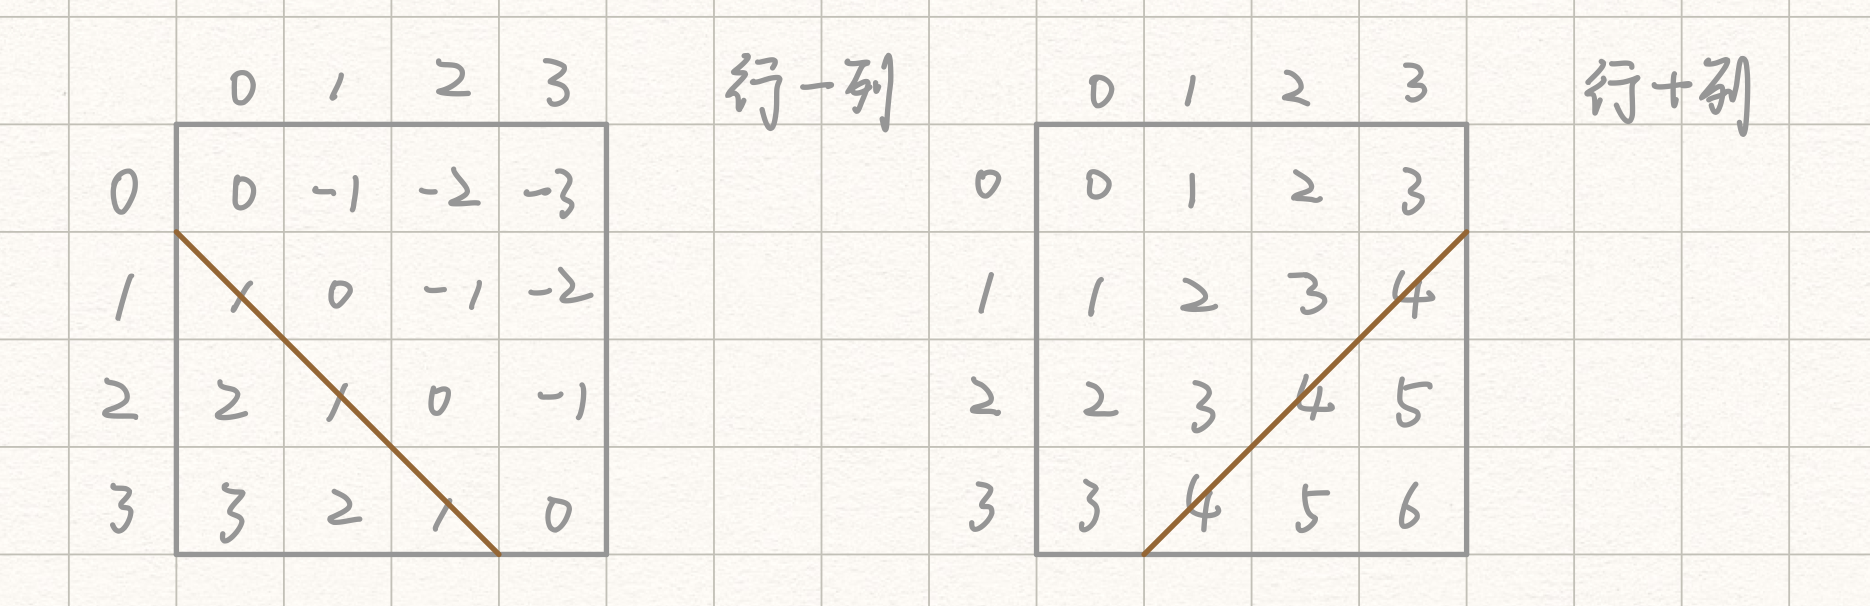 0 1 2 3 行-列
0 0 -1 -2 -3
1 1 0 -1 -2
2 2 1 0 -1
3 3 2 1 0
0 1 2 3 行+列
0 0 1 2 3
1 1 2 3 4
2 2 3 4 5
3 3 4 5 6